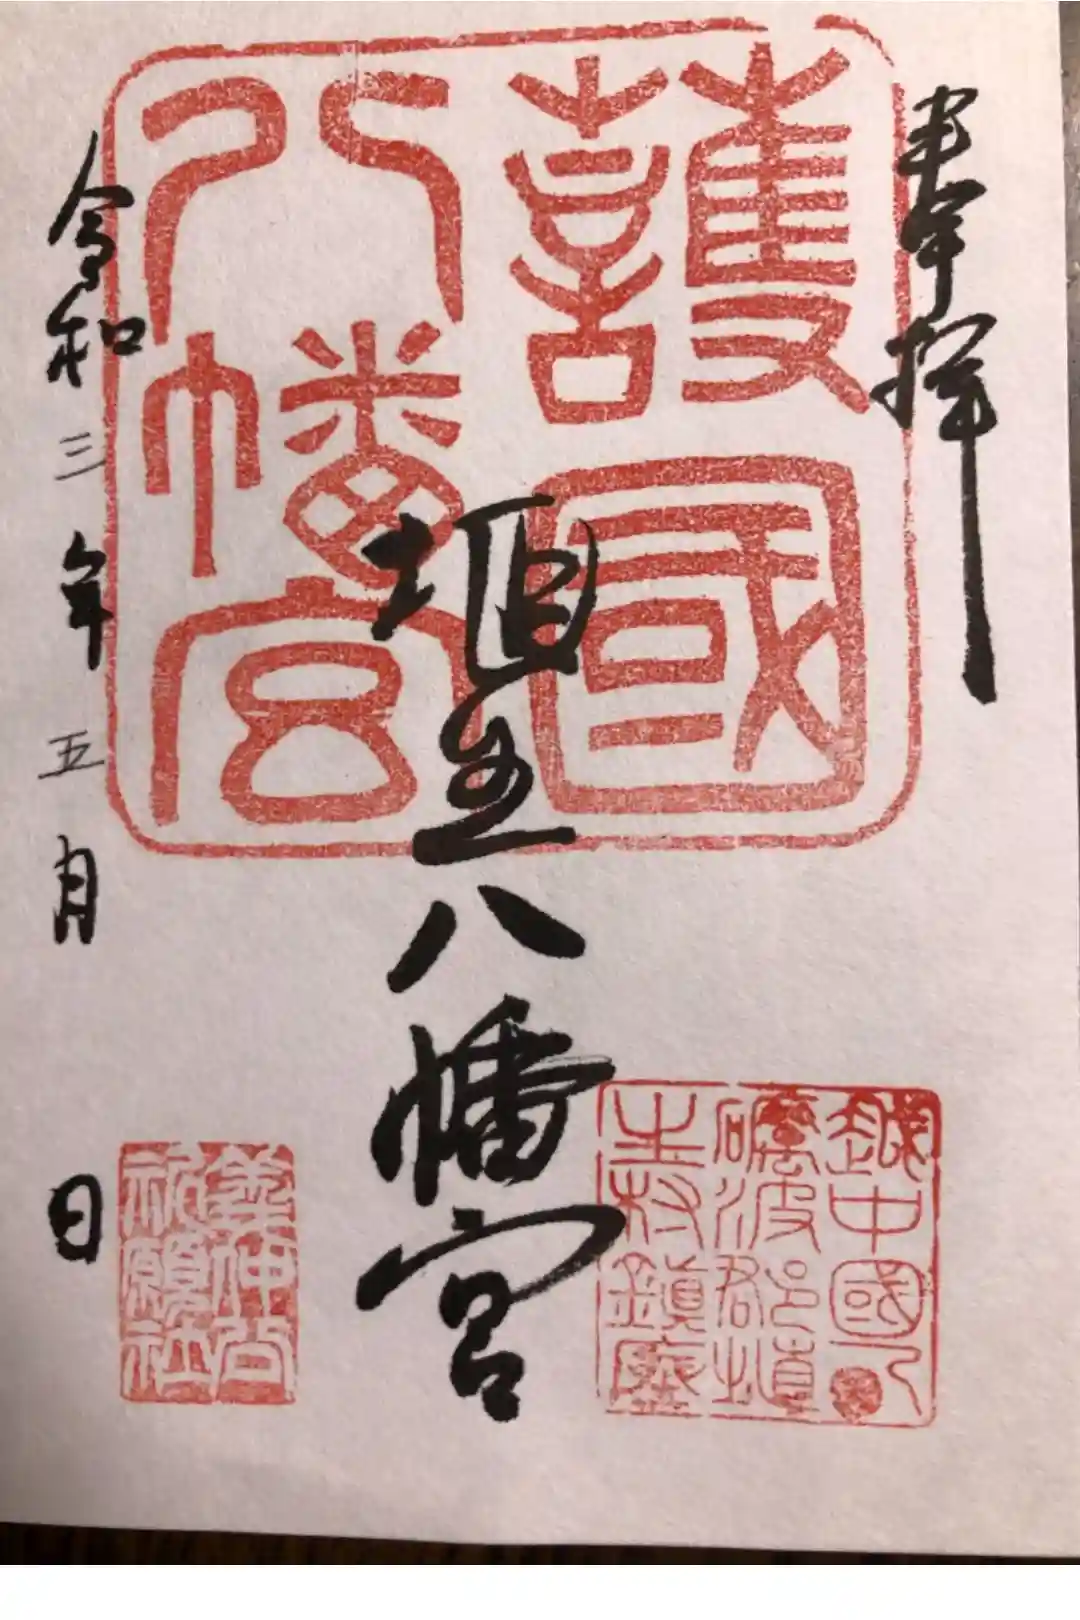 奉拝
護國
八幡宮
埴生八幡宮
越中國一
礪波郡埴
生村鎮座
令和三年五月 日
義仲公
祈願社